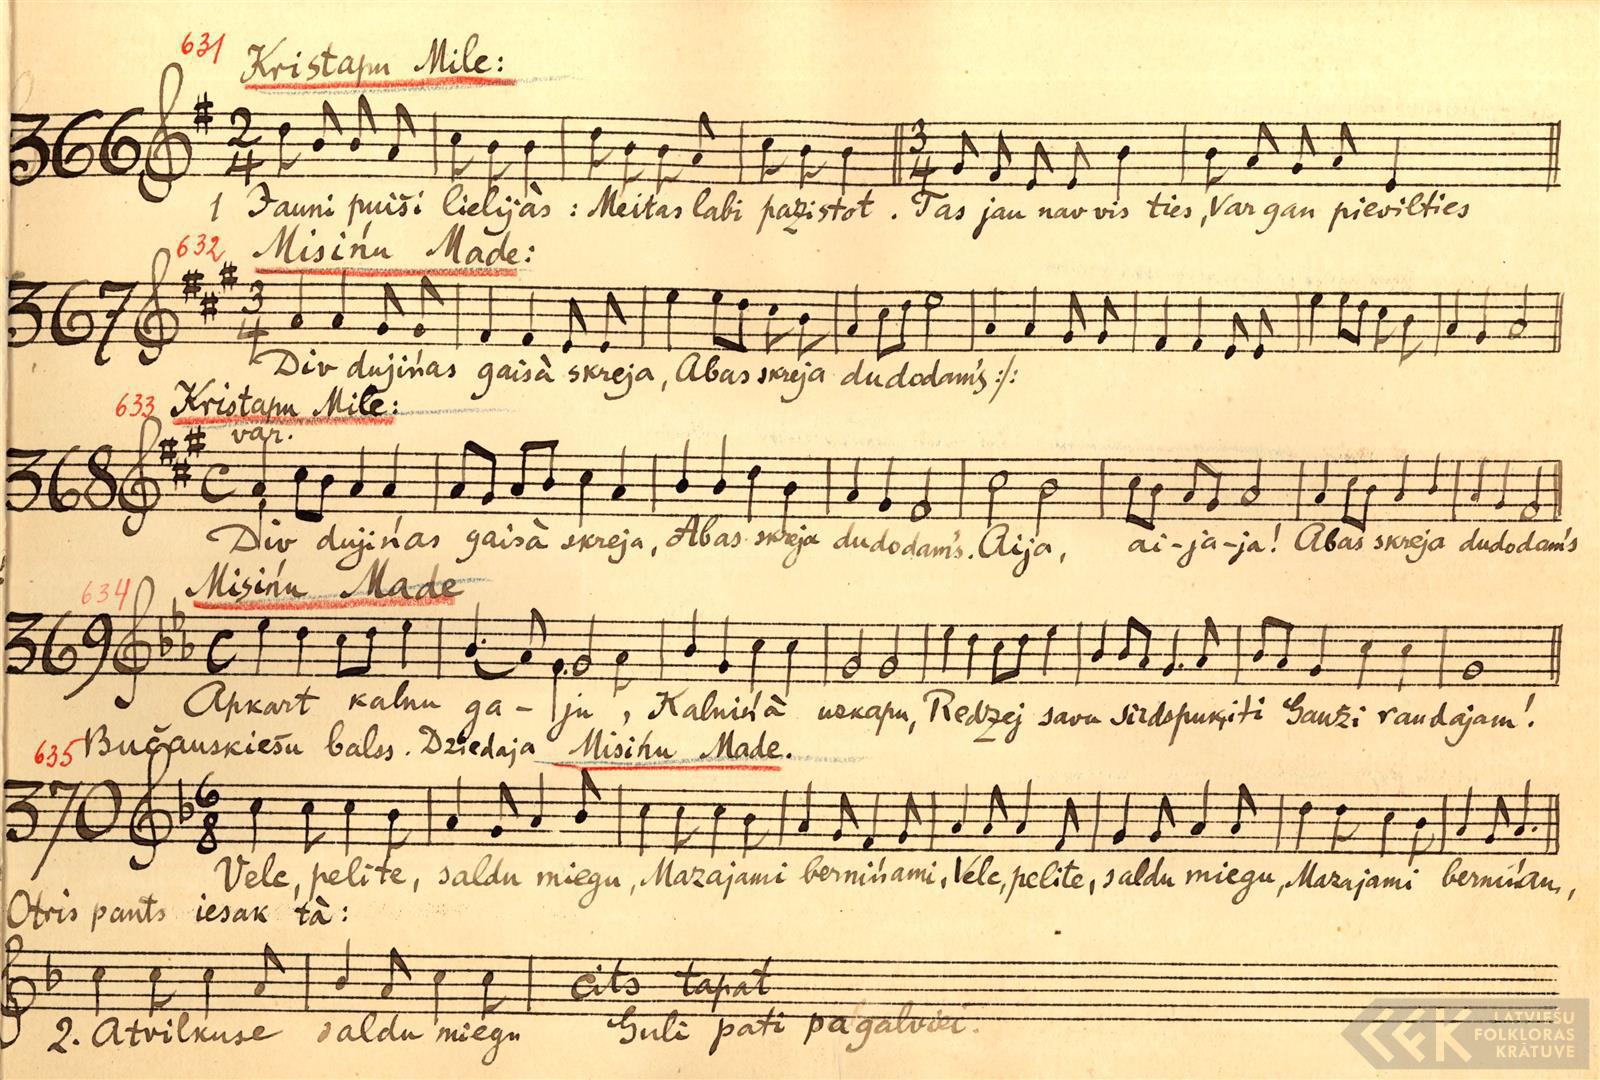 631 Kristapu Mile:
366 2/4 3/4
1 Jauni puiši lielijàs : Meitas labi pazistot. Tas jau nav vis ties, Var gan pievilties
632 Misińu Made:
367 3/4
Div dujińas gaisà skreja, Abas skreja dudodams :/:
633 Kristapu Mile:
var.
368 C
Div dujińas gaisà skreja, Abas skreja dudodams. Aija, ai-ja-ja! Abas skreja dudodams
634 Misińu Made
369 C
Apkart kalnu ga-ju, Kalnińà uzkapu, Redzej savu sirdspuķiti Gauži raudajam!
635 Bučauskiešu balss. Dziedaja Misińu Made.
370 6/8
Velc, pelite, saldu miegu, Mazajami bernińami, Velc, pelite, saldu miegu, Mazajami bernińam,
Otris pants iesak tà:
cits tapat
2. Atvilkuse saldu miegu Guli pati pagalviei.
LATVIEŠU
FOLKLORAS
KRĀTUVE